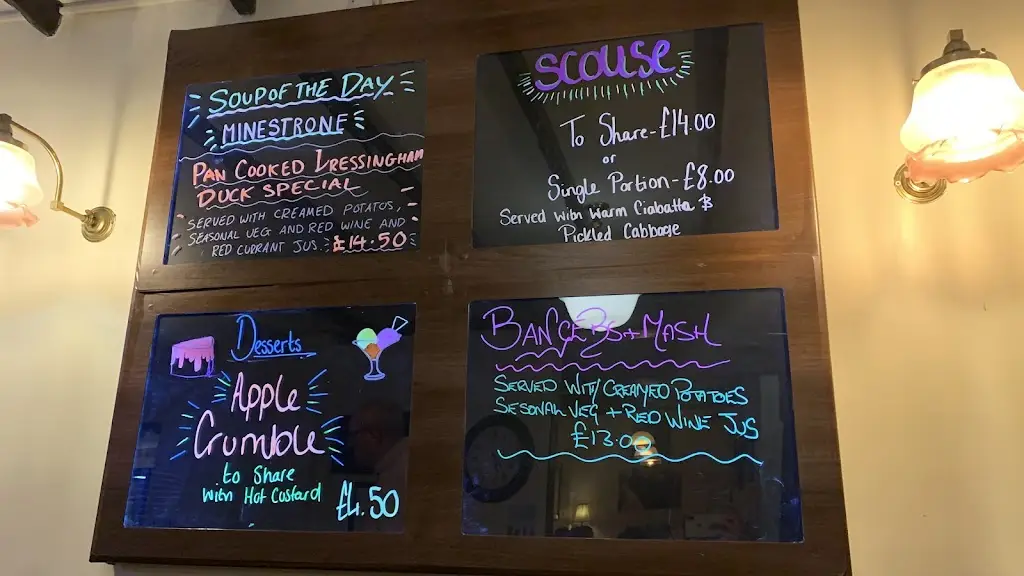 SOUP OF THE DAY
MINESTRONE
PAN COOKED DRESSINGHAM
DUCK SPECIAL
SERVED WITH CREAMED POTATOS,
SEASONAL VEG AND RED WINE AND
RED CURRANT JUS. £14.50
SCOUSE
To Share-£14.00
or
Single Portion-£8.00
Served with Warm Ciabatta &
Pickled Cabbage
Desserts
Apple
Crumble
to Share
with Hot Custard
£4.50
BANGERS+MASH
SERVED WITH CREAMED POTATOES
SESONAL VEG + RED WINE JUS
£13.00